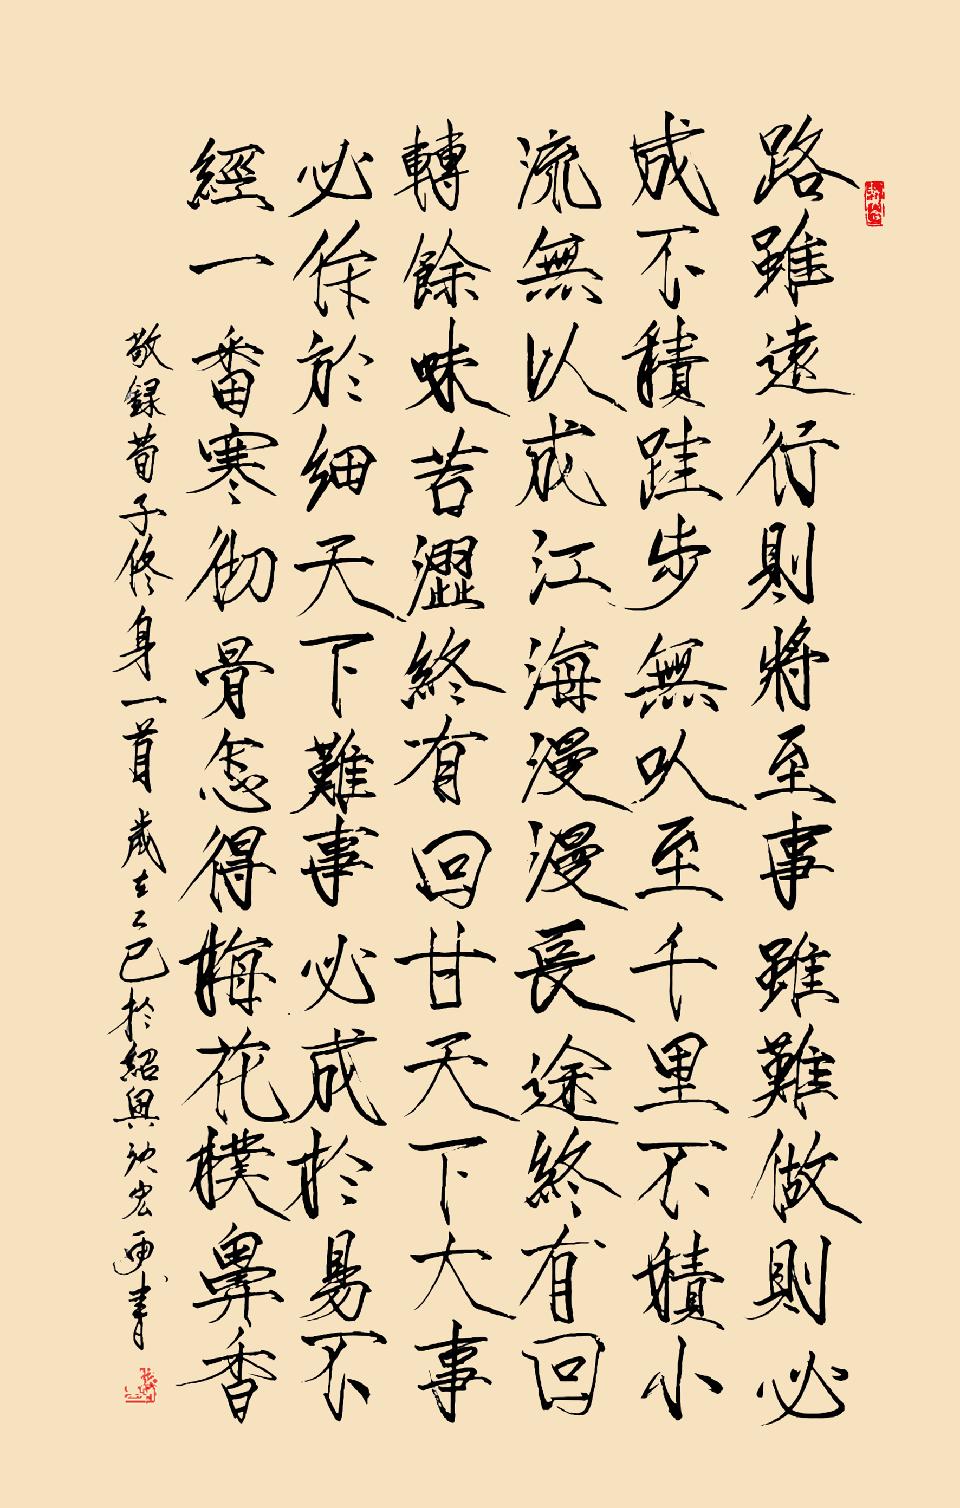 路雖遠行則將至事雖難做則必
成不積跬步無以至千里不積小
流無以成江海漫漫長途終有回
轉餘味苦澀終有回甘天下大事
必作於細天下難事必成於易不
經一番寒彻骨怎得梅花樸鼻香
敬録荀子修身一首歲在乙巳於紹興